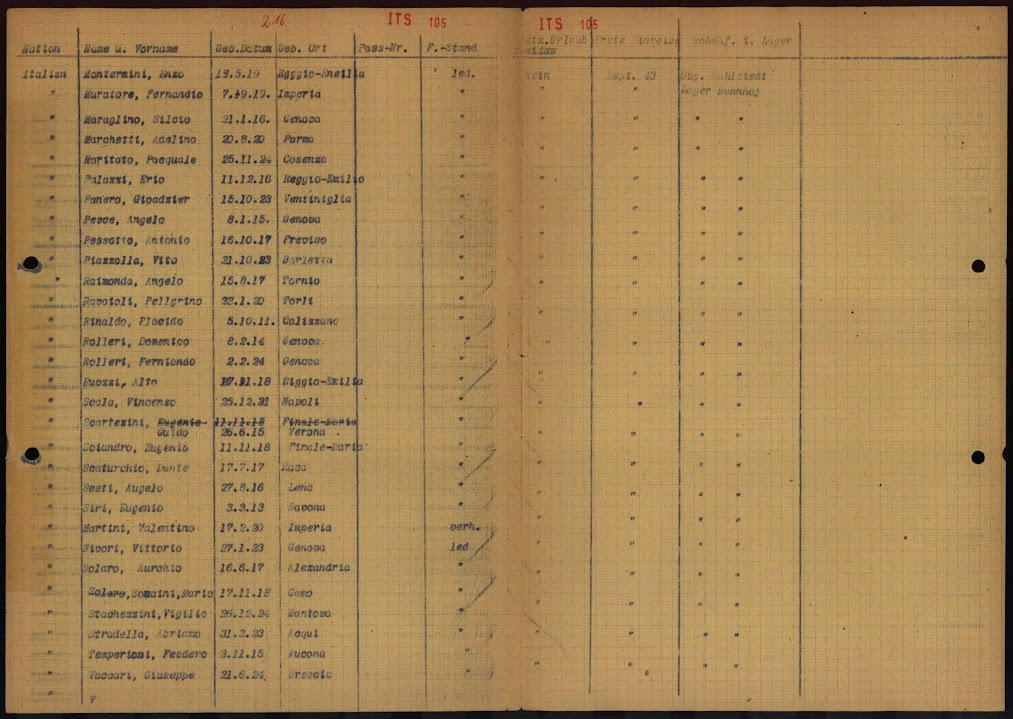 216
ITS 105
ITS 105
Nation Name u. Vorname Geb.Datum Geb. Ort Pass-Nr. F.-Stand Erste Einreise Wohnhf. i. Lager
Italien Montermini, Enzo 13.5.19 Reggio-Emilia led. kein Sept. 43 Obg. Bahlstedt
" Muratore, Fernandio 7.19.19. Imperia " " " Lager Bahnhof
" Maraglino, Silvio 21.1.16. Genova " " " " "
" Marchetti, Adelino 20.8.20 Parma " " " " "
" Maritato, Pasquale 25.11.24 Cosenza " " " " "
" Palazzi, Erio 11.12.16 Reggio-Emilio " " " " "
" Panero, Gioadzier 15.10.23 Ventiniglia " " " " "
" Pesce, Angelo 8.1.15. Genova " " " " "
" Pessotto, Antonio 16.10.17 Previso " " " " "
" Piazzolla, Vito 21.10.23 Barletta " " " " "
" Raimonda, Angelo 15.8.17 Tornio " " " " "
" Ravaioli, Pellgrino 23.1.20 Forli " " " " "
" Rinaldo, Placido 5.10.11. Calizzano " " " " "
" Rolleri, Domenico 8.2.14 Genova. " " " " "
" Rolleri, Ferniondo 2.2.24 Genova " " " " "
" Ruozzi, Alto 17.11.18 Riggio-Emilia " " " " "
" Scala, Vincenzo 25.12.21 Napoli " " " " "
" Scartezini, Eugenio 11.11.18 Finale-Maria " " " " "
Guido 26.6.15 Verona
" Sciandro, Eugenio 11.11.18 Finale-Maria " " " " "
" Scaturchio, Dante 17.7.17 Dasa " " " " "
" Sesti, Augelo 27.8.16 Leno " " " " "
" Siri, Eugenio 3.3.13 Savona " " " " "
" Martini, Valentino 17.2.20 Imperia verh. " " " "
" Sivori, Vittorio 27.1.23 Genova led " " " "
" Solaro, Aurchio 16.6.17 Alexandria " " " " "
" Solaro, Somaini, Mario 17.11.18 Como " " " " "
" Stachezzini, Vigilio 26.12.24 Mantova " " " " "
" Stradella, Abriamo 31.3.23 Acqui " " " " "
" Tempertoni, Feodero 3.11.15 Aucona " " " " "
" Vaccari, Giuseppe 21.6.24 Bresota " " " " "
" V